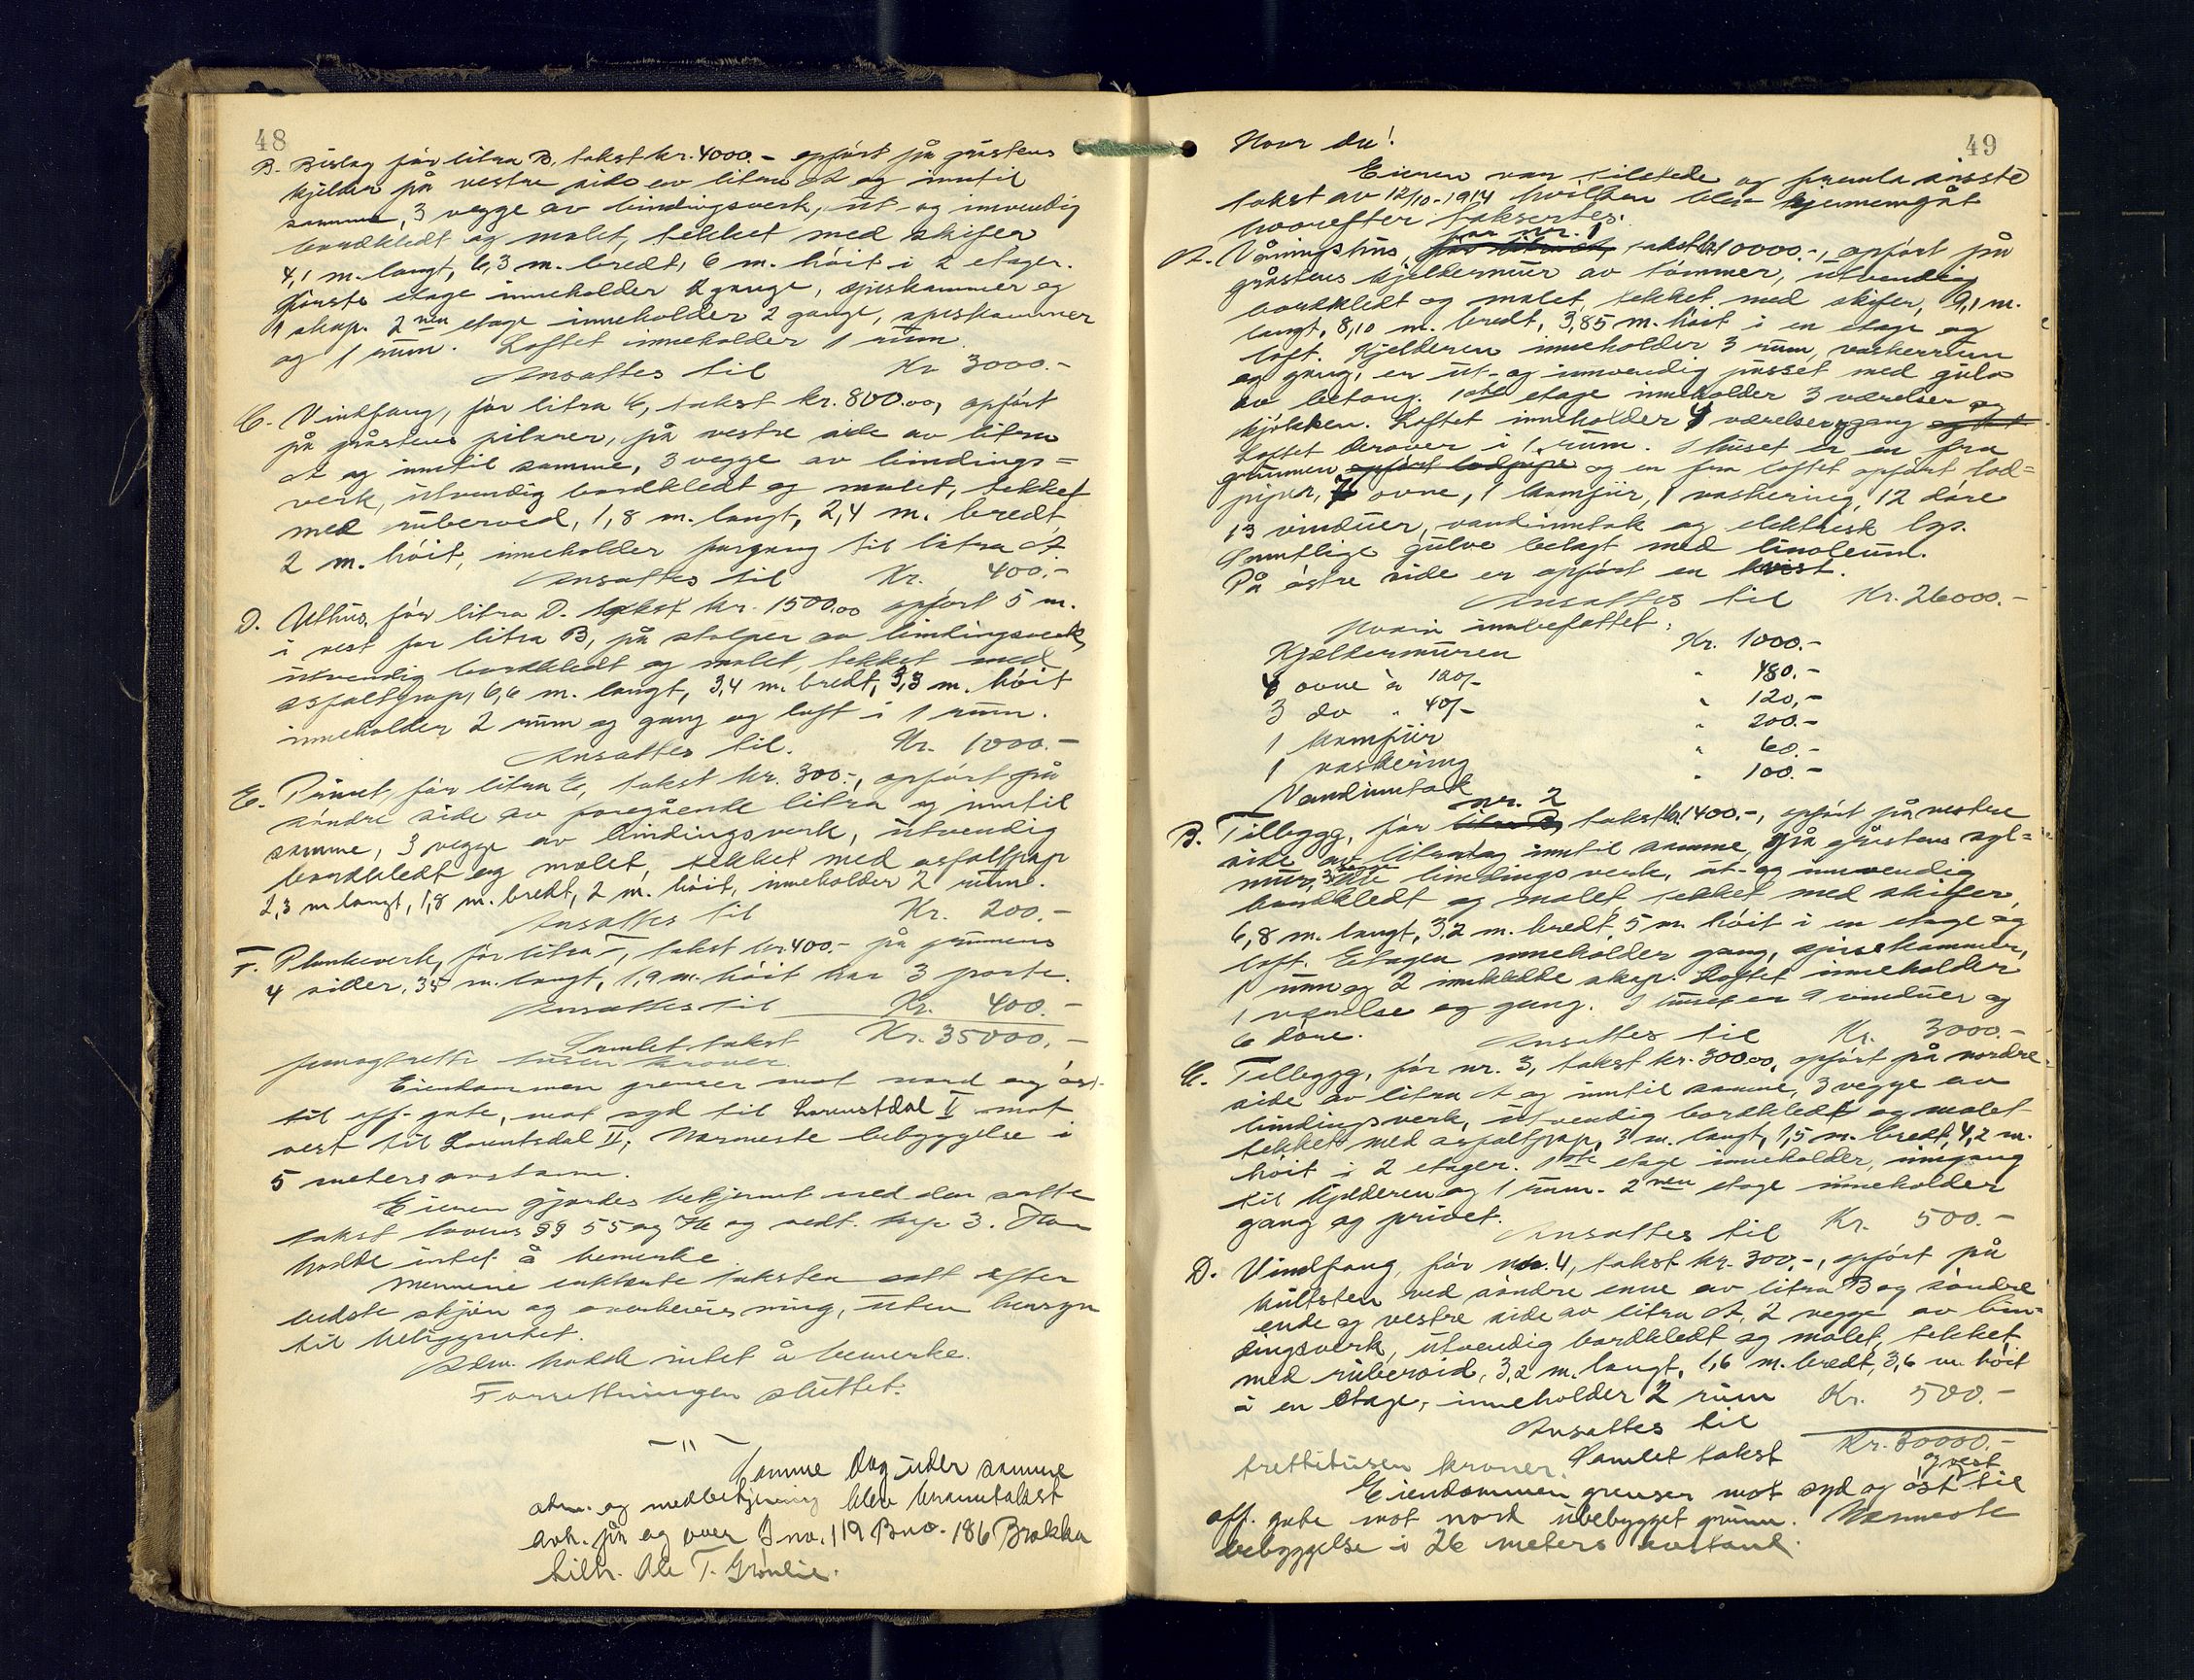 48
B. Bislag før litra B, takst kr. 4000.- opført på gråstens
kjelder på vestre side av litra A og inntil
samme, 3 vegge av bindingsverk, ut- og innvendig
bordkledt og malet, tekket med skifer
4,1 m. langt, 6,3 m. bredt, 6 m. høit i 2 etager.
Første etage inneholder 2 gange, spiskammer og
1 skap. 2nen etage inneholder 2 gange, spiskammer
og 1 rum. Loftet inneholder 1 rum.
Ansattes til Kr 3000.-
C. Vindfang, før litra C, takst kr. 800.00, opført
på gråstens pilarer, på vestre side av litra
A og inntil samme, 3 vegge av bindings=
verk, utvendig bordkledt og malet, tekket
med ruberoid, 1,8 m. langt, 2,4 m. bredt,
2 m. høit, inneholder forgang til litra A
Ansattes til Kr. 400.-
D. Uthus, før litra D. takst kr. 1500.00 opført 5 m.
i vest for litra B, på stolper av bindingsverk,
utvendig bordkledt og malet, tekket med
asfaltpap, 6,6 m. langt, 3,4 m. bredt, 3,3 m. høit
inneholder 2 rum og gang og loft i 1 rum.
Ansattes til. Kr. 1000.-
E. Privet, før litra E, takst kr. 300.-, opført på
søndre side av foregående litra og inntil
samme, 3 vegge av bindingsverk, utvendig
bordkledt og malet, tekket med asfaltpap
2,3 m langt, 1,8 m. bredt, 2 m. høit, inneholder 2 rum.
Ansattes til Kr. 200.-
F. Plankeverk, før litra F, takst kr. 400.- på grunnens
4 sider, 35 m. langt, 1,9 m. høit har 3 porte.
Ansattes til Kr. 400.-
Samlet takst Kr. 35000.-
femogtretti tusen kroner.
Eiendommen grenser mot nord og øst
til off. gate, mot syd til Lorentsdal V mot
vest til Lorentsdal II; Nærmeste bebyggelse i
5 meters avstann.
Eieren gjordes bekjennt med den satte
takst lovens §§ 55 og 76 og vedt. kap 3. Han
hadde intet å bemerke.
Mennene erklærte taksten satt efter
bedste skjøn og overbevisning, uten hensyn
til beliggenhet.
Adm. hadde intet å bemerke.
Forretningen sluttet.
- " -
Samme dag under samme
adm. og medbetjening blev branntakst
avh. på og over Gno. 119 Bno. 186 Brakka
tilh. Ole T. Grønlie.
49
Hvor da!
Eieren var tilstede og fremla sidste
takst av 12/10-1914 hvilken blev gjennemgåt
hvorefter taksertes:
før nr. 1
A. Våningshus, før litra A, takst kr. 10000.-, opført på
gråstens kjeldermur av tømmer, utvendig
bordkledt og malet, tekket med skifer, 9,1 m.
langt, 8,10 m. bredt, 3,85 m. høit i en etage og
loft. Kjelderen inneholder 3 rum, vaskerrum
og gang, er ut- og innvendig pusset med gulv
av betong. 1ste etage inneholder 3 værelser og
kjøkken. Loftet inneholder 4 værelser, gang og et
Loftet derover i 1 rum. I huset er en fra
grunnen opført lodpipe og en fra loftet opført lod=
piper, 7 ovne, 1 komfür, 1 vaskering, 12 døre
13 vinduer, vandinntak og elektrisk lys.
Samtlige gulve belagt med linoleum.
På østre side er opført en kvist.
Ansattes til Kr. 26000.-
Hvori innbefattet:
Kjeldermuren Kr. 1000.-
4 ovne à 120/- " 480.-
3 do " 40/- " 120,-
1 komfür " 200.-
1 vaskering " 60.-
Vandinntak " 100.-
nr. 2
B. Tilbygg, før litra B, takst kr. 1400.-, opført på vestre
side av litra A og inntil samme, på gråstens syl=
mur, 3 vegge bindingsverk, ut- og innvendig
bordkledt og malet, tekket med skifer,
6,8 m. langt, 3,2 m. bredt, 5 m. høit i en etage og
loft. Etagen inneholder gang, spisekammer,
1 rum og 2 innkledde skap. Loftet inneholder
1 værelse og gang. I huset er 9 vinduer og
6 døre. Ansattes til Kr. 3000.-
C. Tilbygg, før nr. 3, takst kr. 300.00, opført på nordre
side av litra A og inntil samme, 3 vegge av
bindingsverk, utvendig bordkledt og malet
tekket med asfaltpap, 3 m. langt, 1,5 m. bredt, 4,2 m.
høit i 2 etager. 1ste etage inneholder, inngang
til kjelderen og 1 rum. 2nen etage inneholder
gang og privet.
Ansattes til Kr. 500.-
D. Vindfang, før nr. 4, takst kr. 300.-, opført på
kultsten ved søndre enne av litra B og søndre
ende og vestre side av litra A, 2 vegge av bin=
dingsverk, utvendig bordkledt og malet, tekket
med ruberoid, 3,2 m. langt, 1,6 m. bredt, 3,6 m. høit
i en etage, inneholder 2 rum Kr. 500.-
Ansattes til
Samlet takst Kr. 30000.-
trettitusen kroner.
og vest
Eiendommen grenser mot syd og øst til
off. gate mot nord ubebygget grunn. Nærmeste
bebyggelse i 26 meters avstand.